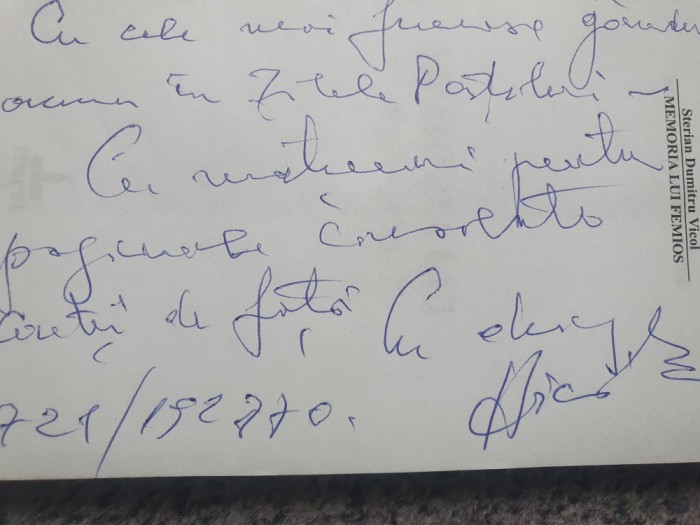 Cu cele mai frumoase gânduri
acum în Zilele Paștelui –
Cu mulțumiri pentru
paginate
cărții de față Cu drag,
721/192770.
Sterian Dumitru Vicol
MEMORIA LUI FEMIOS